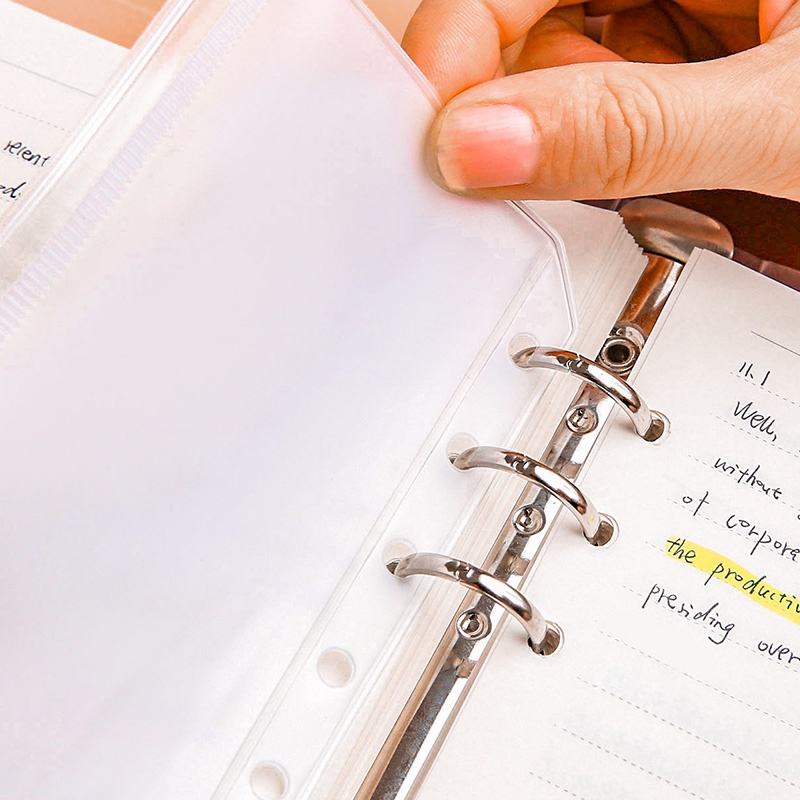 relent
ed.
11.1
Well,
without
of corpora
the productiv
presiding over